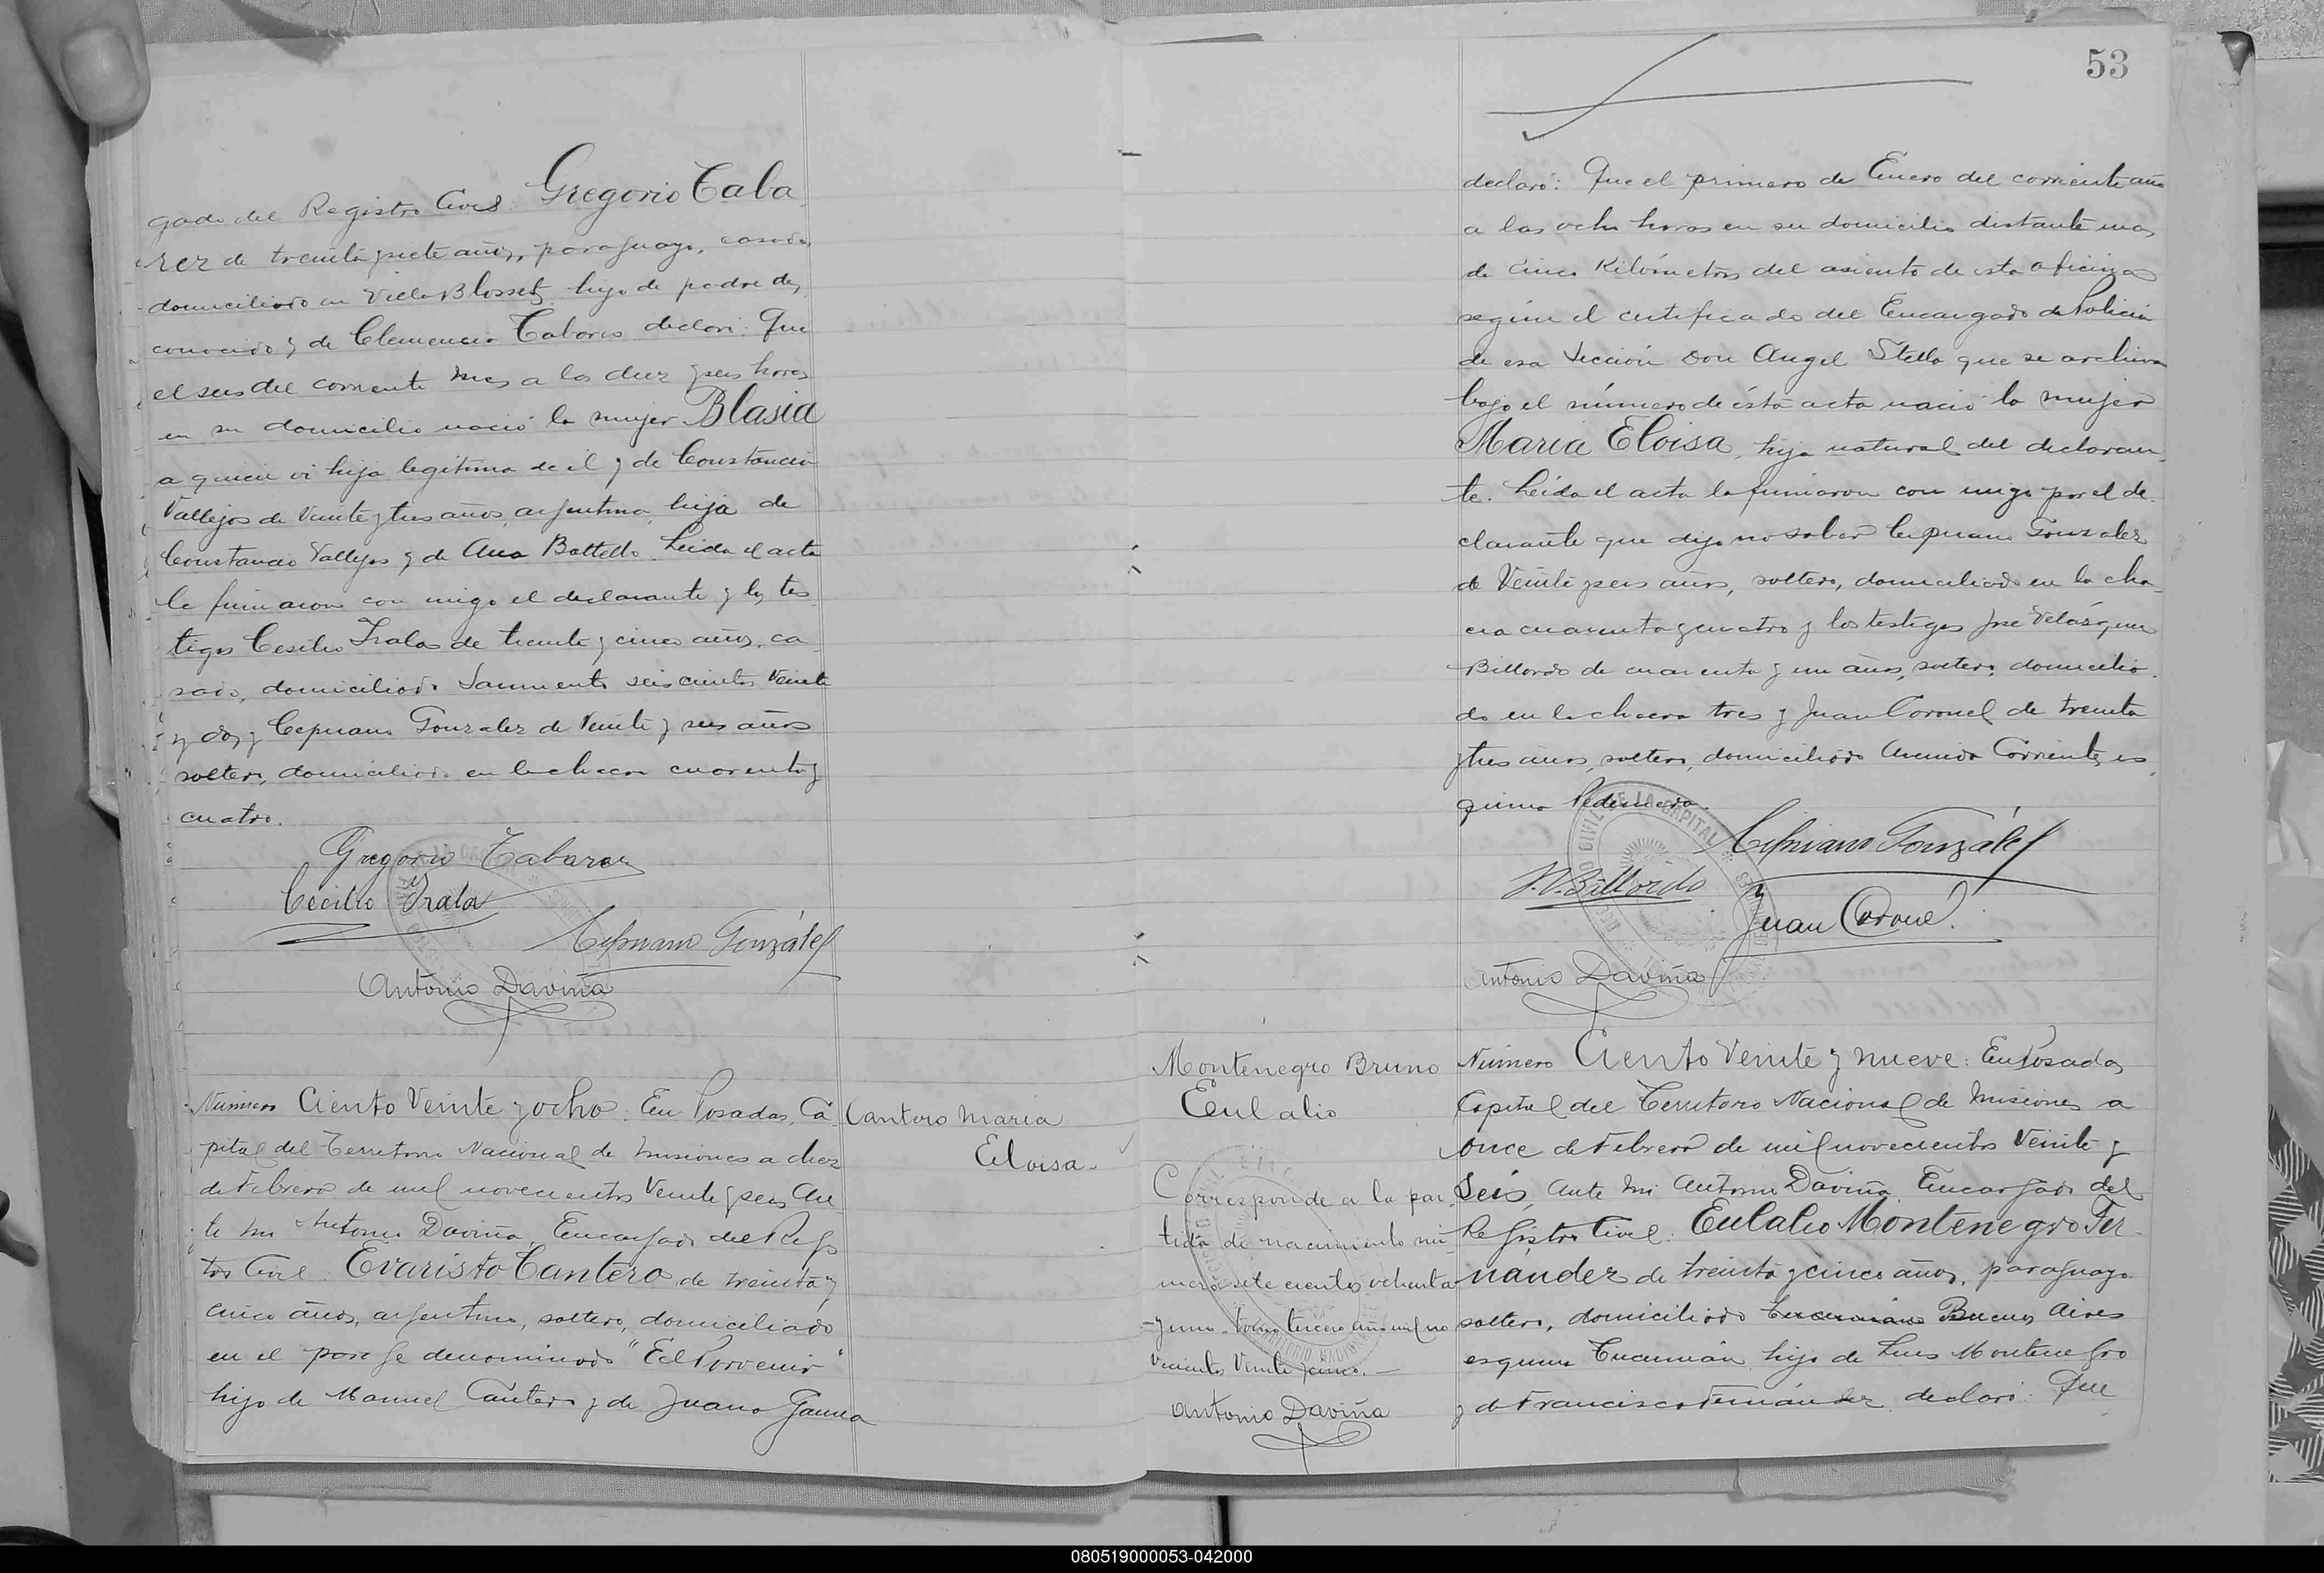 gado del Registro Civil. Gregorio Taba
rez de treinta y siete años, paraguayo, casado,
domiciliado en Villa Blosset, hijo de padre des
conocido y de Clemencia Tabares declaró: Que
el seis del corriente mes a las diez y seis horas
en su domicilio nació la mujer Blasia
a quien vi hija legitima de él y de Constancia
Vallejos de veinte y tres años, argentina, hija de
Constancio Vallejos y de Ana Battello. Leída el acta
la firmaron con migo el declarante y los tes
tigos Cesilio Irala de treinta y cinco años, ca
sado, domiciliado Sarmiento seiscientos veinte
y dos y Cipriano Gonzalez de veinte y seis años
soltero, domiciliado en la chacra cuarenta y
cuatro.
Gregorio Tabarez
Cecilio Irala
Cipriano González
Antonio Daviña
Número Ciento Veinte y ocho. En Posadas, Ca
pital del Territorio Nacional de Misiones a diez
de Febrero de mil novecientos veinte y seis An
te mi Antonio Daviña, Encargado del Regis
tro Civil. Evaristo Cantero, de treinta y
cinco años, argentino, soltero, domiciliado
en el paraje denominado "El Porvenir"
hijo de Manuel Cantero y de Juana Gauna
Cantero Maria
Eloisa.
53
declaró: Que el primero de Enero del corriente año
a las ocho horas en su domicilio distante mas
de cinco Kilómetros del asiento de esta oficina
según el certificado del Encargado de Policia
de esa sección Don Angel Stella que se archiva
bajo el número de ésta acta nació la mujer
Maria Eloisa, hija natural del declaran
te. Leída el acta la firmaron con migo por el de
clarante que dijo no saber Cipriano Gonzalez
de veinte y seis años, soltero, domiciliado en la cha
cra cuarenta y cuatro y los testigos José Velázquez
Billordo de cuarenta y un años, soltero, domicilia
do en la chacra tres y Juan Coronel de treinta
y tres años, soltero, domiciliado Avenida Corrientes es
quina Pedernera.
Cipriano González
J. V. Billordo
Juan Coronel
Antonio Daviña
Montenegro Bruno
Eulalio
Corresponde a la par
tida de nacimiento nú
mero siete cientos ochenta
y uno tomo tercero año mil no
vecientos veinte y cinco.
Antonio Daviña
Número Ciento Veinte y nueve: En Posadas
Capital del Territorio Nacional de Misiones a
once de Febrero de mil novecientos veinte y
seis, Ante mi Antonio Daviña, Encargado del
Registro Civil. Eulalio Montenegro Fer
nandez de treinta y cinco años, paraguayo
soltero, domiciliado Buenos Aires
esquina Tucumán, hijo de Luis Montenegro
y de Francisca Fernández, declaró: Que
080519000053-042000